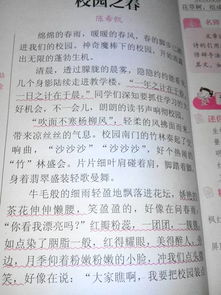 校园之春
陈希帆
绵绵的春雨，暖暖的春风，春的脚步
进我们的校园。神奇魔棒下的校园，开始
出无限的蓬勃生机。
清晨，透过朦胧的晨雾，隐隐约约
几个身影陆续走进教学楼。“一年之计在于
一日之计在于晨。”同学们深知要把握住
好机会，不一会儿，朗朗的读书声响彻校园
“吹面不寒杨柳风”，轻柔的风拂面而来
带来凉丝丝的气息。校园南门的竹林奏起了
响曲，“沙沙沙”“沙沙沙”，好不热闹的
“竹”林盛会。片片细叶肩碰着肩，脚踏着
身着翡翠盛装轻歌曼舞。
牛毛般的细雨轻盈地飘落进花坛，
茶花伸伸懒腰，笑盈盈的，好像在问春雨
“你看我漂亮吗？”红瓣粉蕊，一团团，
如点染了胭脂一般，红得耀眼，美得醉人
边，月季仰着粉嫩粉嫩的小脸，冲我们点头
笑，好像在说：“大家瞧啊，我要把校园